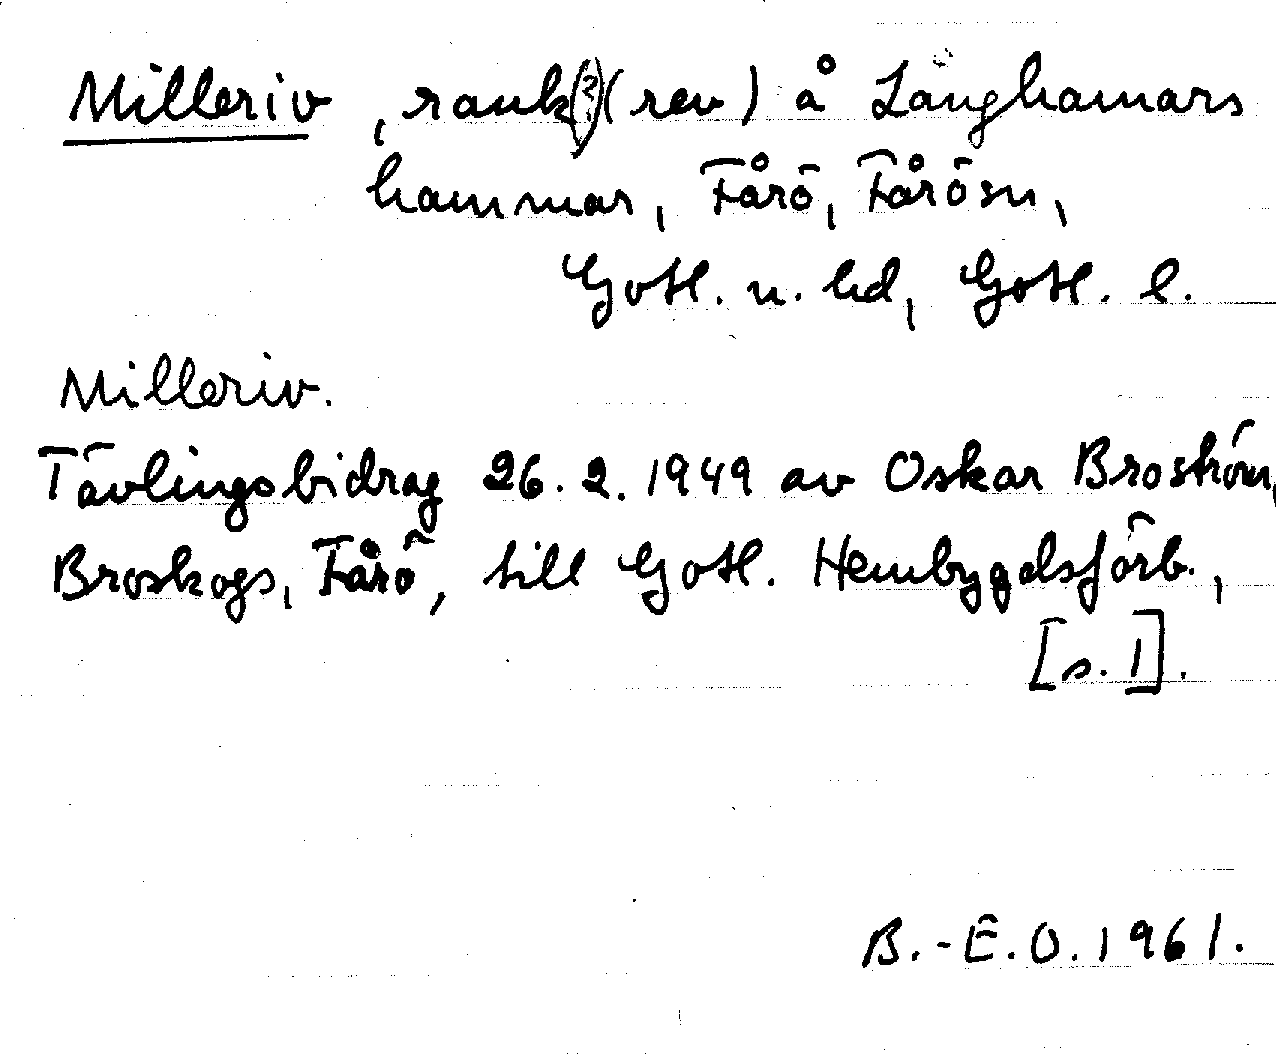 Milleriv, rauk(?)(rev) å Langhamars
hammar, Fårö, Fårösu,
Gotl. n. hd, Gotl. l.
Milleriv.
Tävlingsbidrag 26.2.1949 av Oskar Broström,
Broskogs, Fårö, till Gotl. Hembygdsförb.,
[s. 1].
B.-E.O.1961.